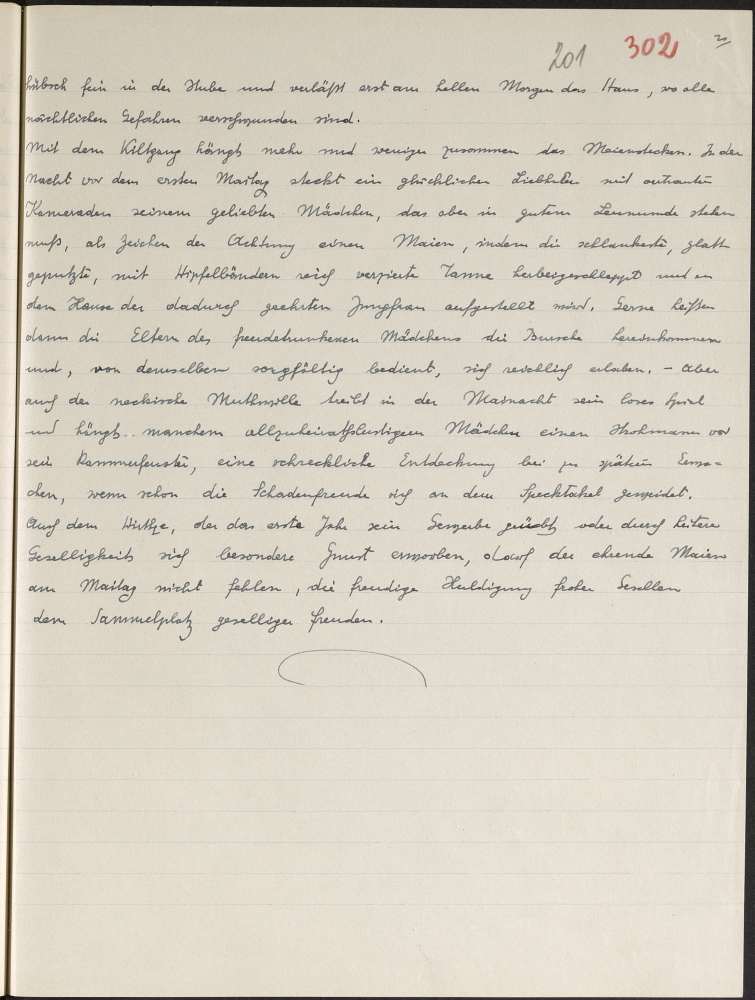 201 302
hübsch fein in der Stube und verläßt erst am hellen Morgen das Haus, wo alle
nächtlichen Gefahren verschwunden sind.
Mit dem Kiltgang hängt mehr und weniger zusammen das Maienstecken. In der
Nacht vor dem ersten Maitag steckt ein glücklicher Liebhaber mit vertrauten
Kameraden seinem geliebten Mädchen, das aber in gutem Leumunde stehen
muß, als Zeichen der Achtung einen Maien, indem die schlankeste, glatt
geputzte, mit Hipfelbändern reich verzierte Tanne herbeigeschleppt und an
dem Hause der dadurch geehrten Jungfrau aufgestellt wird. Gerne heißen
dann die Eltern des freudetrunkenen Mädchens die Bursche hereinkommen
und, von demselben sorgfältig bedient, sich reichlich erlaben. – Aber
auch der neckische Muthwille treibt in der Mainacht sein loses Spiel
und hängt manchem allzuheirathslustigen Mädchen einen Strohmann vor
sein Kammerfenster, eine schreckliche Entdeckung bei zu spätem Erwa-
chen, wenn schon die Schadenfreude sich an dem Specktakel geweidet.
Auch dem Wirthe, der das erste Jahr sein Gewerbe geübt oder durch heitere
Geselligkeit sich besondere Gunst erworben, darf der ehrende Maien
am Maitag nicht fehlen, die freudige Huldigung froher Gesellen
dem Sammelplatz geselliger Freuden.